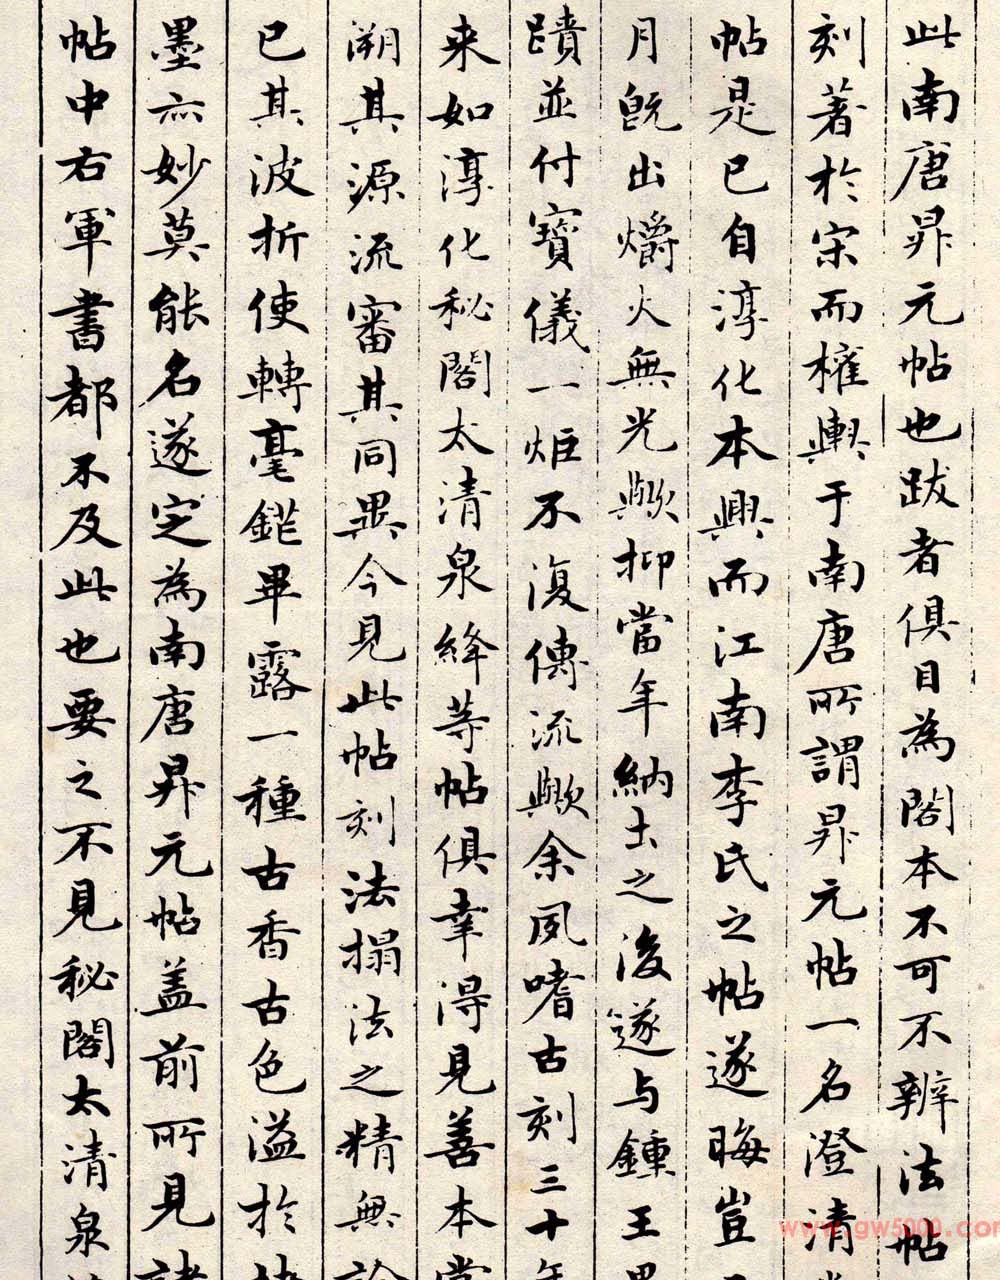 此南唐昇元帖也跋者俱目為閣本不可不辨法帖
刻著於宋而權輿于南唐所謂昇元帖一名澄清
帖是已自淳化本興而江南李氏之帖遂晦豈
月既出爝火無光歟抑當年納土之後遂与鍾王
蹟並付寶儀一炬不復傳流歟余夙嗜古刻三十年
来如淳化秘閣太清泉絳等帖俱幸得見善本
溯其源流審其同異今見此帖刻法搨法之精無論
已其波折使轉毫鋩畢露一種古香古色溢於
墨亦妙莫能名遂定為南唐昇元帖盖前所見諸
帖中右軍書都不及此也要之不見秘閣太清泉
www.gw5000.com